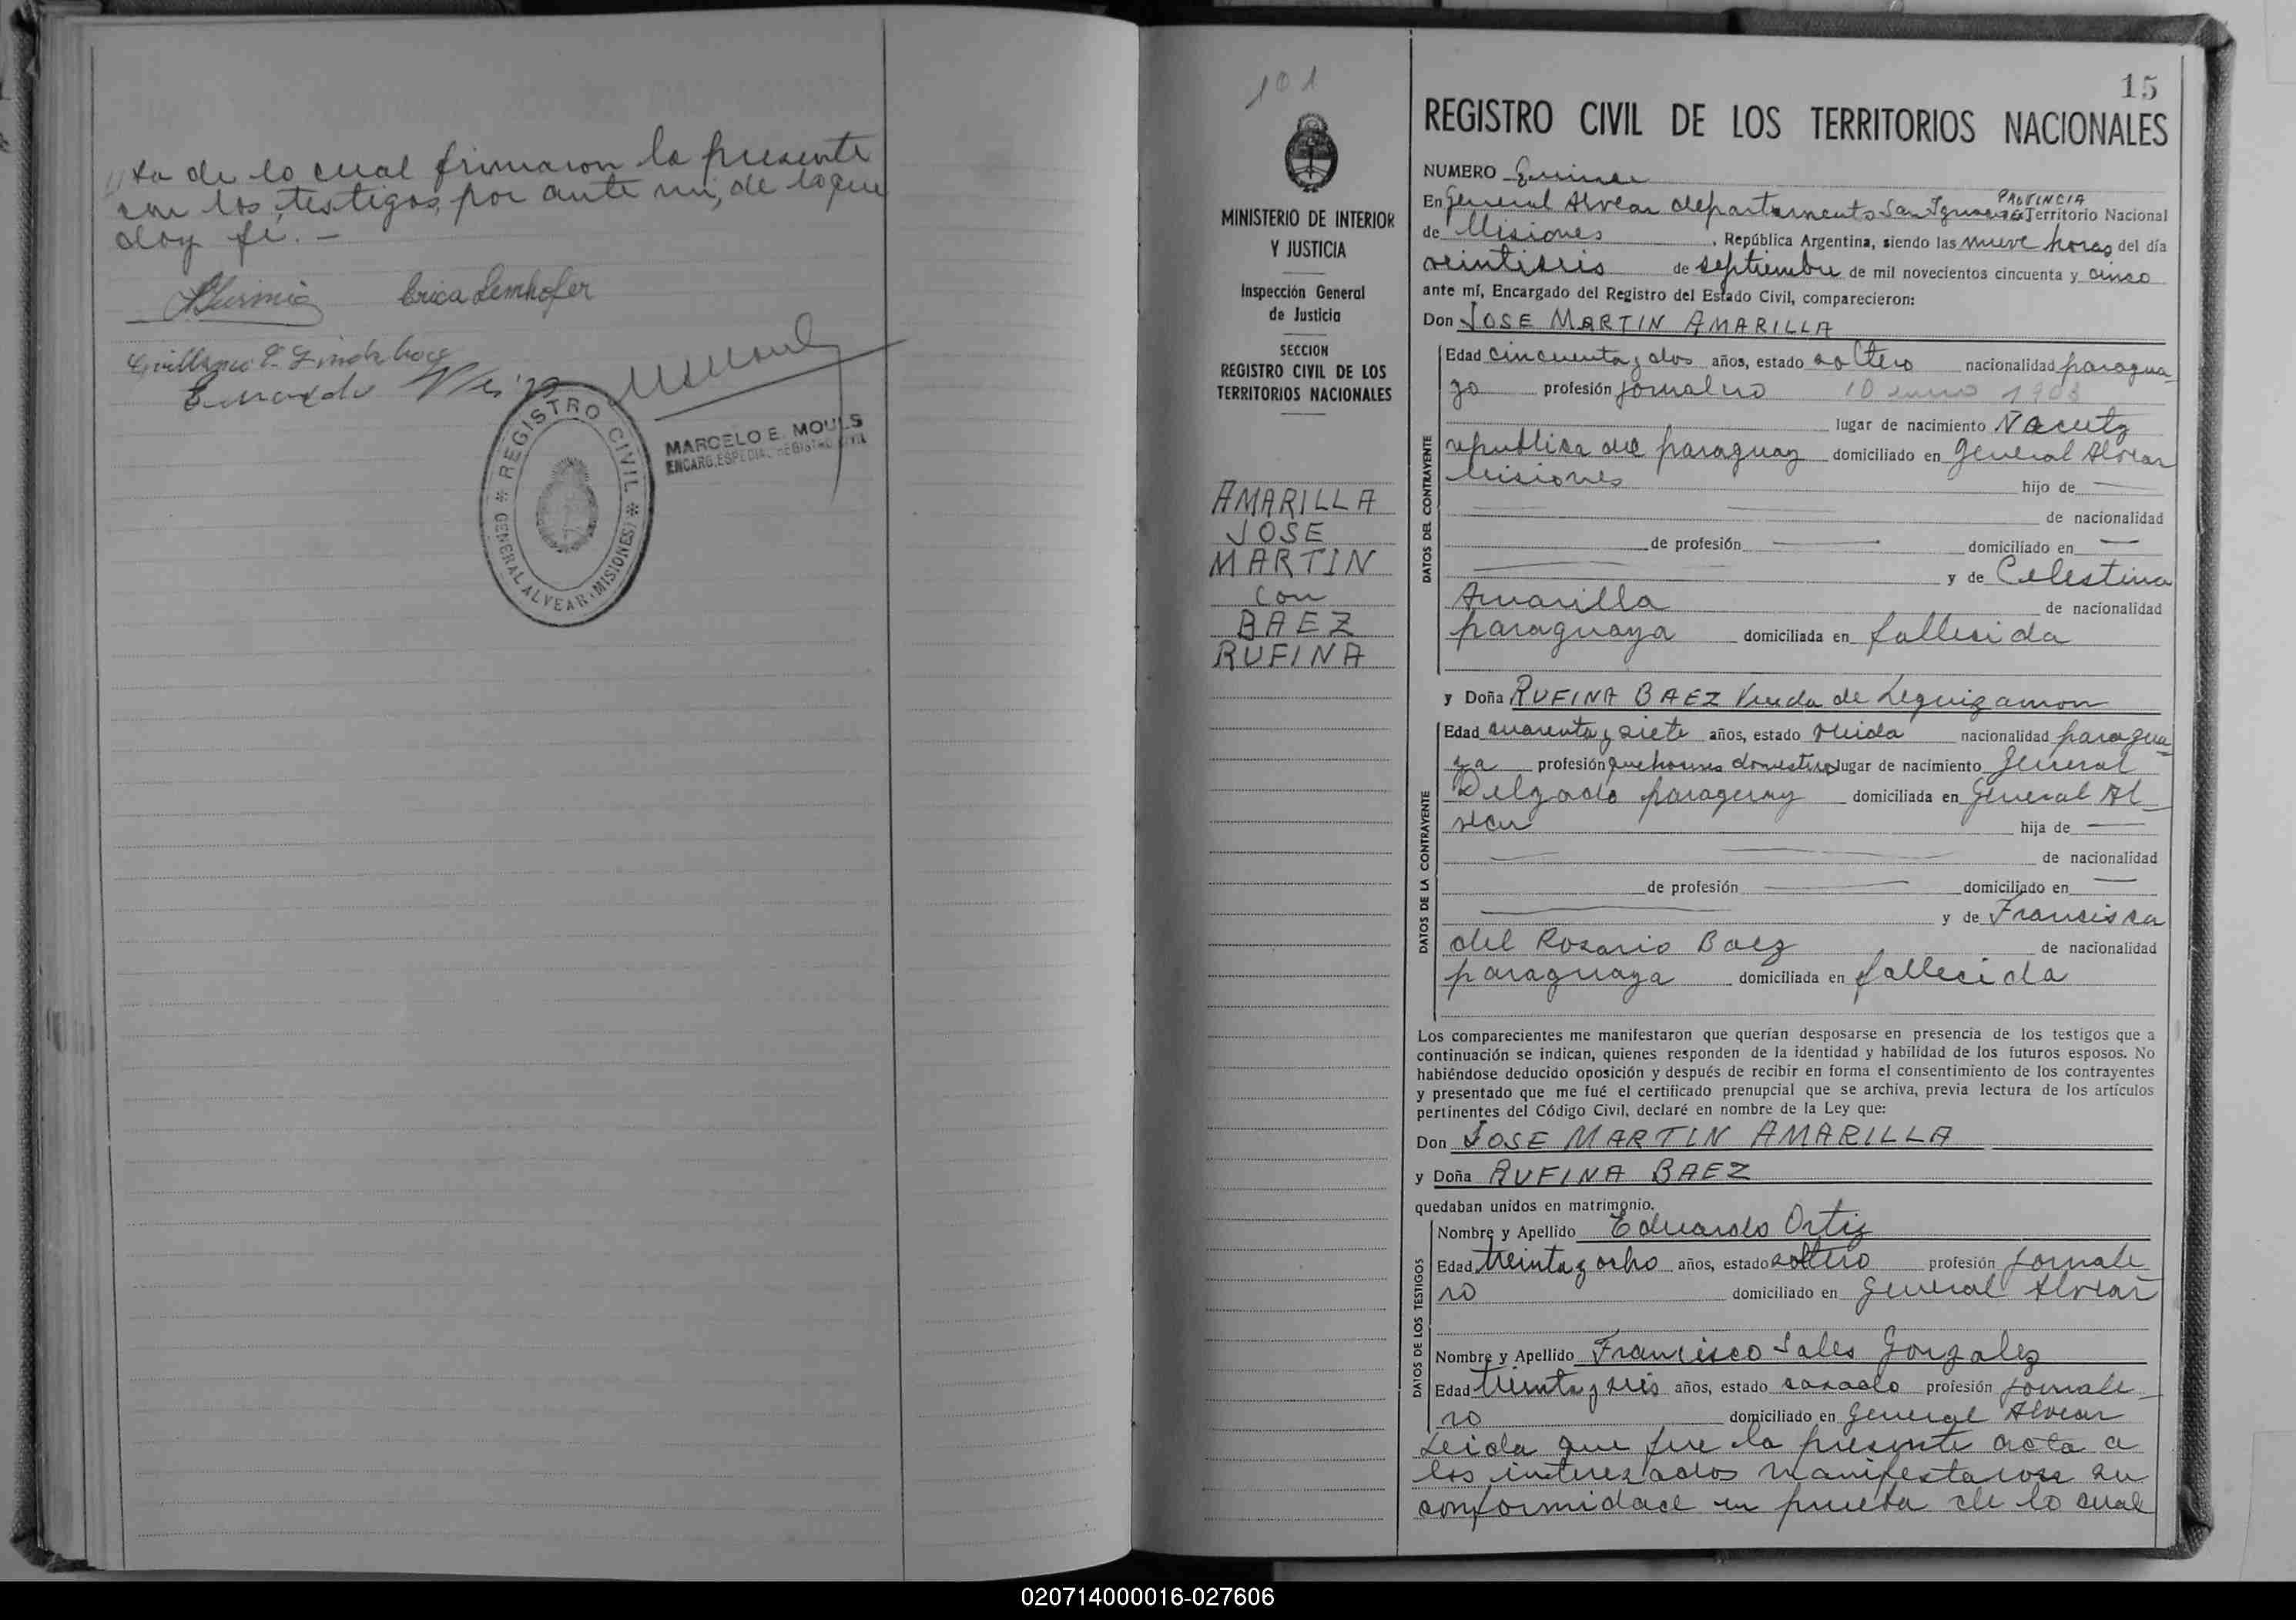 ta de lo cual firmaron la presente
con los testigos, por ante mi, de lo que
doy fé. —
Erica Lemhofer
MARCELO E. MOULS
ENCARG. ESPECIAL REGISTRO CIVIL
REGISTRO CIVIL
GENERAL ALVEAR (MISIONES)
101
MINISTERIO DE INTERIOR
Y JUSTICIA
Inspección General
de Justicia
SECCION
REGISTRO CIVIL DE LOS
TERRITORIOS NACIONALES
AMARILLA
JOSE
MARTIN
con
BAEZ
RUFINA
15
REGISTRO CIVIL DE LOS TERRITORIOS NACIONALES
NUMERO Quince
PROVINCIA
En General Alvear departamento San Ignacio Territorio Nacional
de Misiones, República Argentina, siendo las nueve horas del día
veintiseis de septiembre de mil novecientos cincuenta y cinco
ante mí, Encargado del Registro del Estado Civil, comparecieron:
Don JOSE MARTIN AMARILLA
DATOS DEL CONTRAYENTE
Edad cincuenta y dos años, estado soltero nacionalidad paragua-
yo profesión jornalero 10 enero 1903
lugar de nacimiento
republica del paraguay domiciliado en General Alvear
Misiones hijo de —
de nacionalidad
de profesión — domiciliado en —
y de Celestina
Amarilla de nacionalidad
paraguaya domiciliada en fallecida
y Doña RUFINA BAEZ Viuda de Leguizamon
DATOS DE LA CONTRAYENTE
Edad cuarenta y siete años, estado viuda nacionalidad paragua-
ya profesión quehaceres domesticos lugar de nacimiento General
Delgado paraguay domiciliada en General Al-
vear hija de —
de nacionalidad
de profesión — domiciliado en —
y de Francisca
del Rosario Baez de nacionalidad
paraguaya domiciliada en fallecida
Los comparecientes me manifestaron que querían desposarse en presencia de los testigos que a
continuación se indican, quienes responden de la identidad y habilidad de los futuros esposos. No
habiéndose deducido oposición y después de recibir en forma el consentimiento de los contrayentes
y presentado que me fué el certificado prenupcial que se archiva, previa lectura de los artículos
pertinentes del Código Civil, declaré en nombre de la Ley que:
Don JOSE MARTIN AMARILLA
y Doña RUFINA BAEZ
quedaban unidos en matrimonio.
DATOS DE LOS TESTIGOS
Nombre y Apellido Eduardo Ortiz
Edad treinta y ocho años, estado soltero profesión jornale
ro domiciliado en General Alvear
Nombre y Apellido Francisco Sales Gonzalez
Edad treinta y seis años, estado casado profesión jornale-
ro domiciliado en General Alvear
Leida que fue la presente acta a
los interezados manifestaron su
conformidad en prueba de lo cual
020714000016-027606